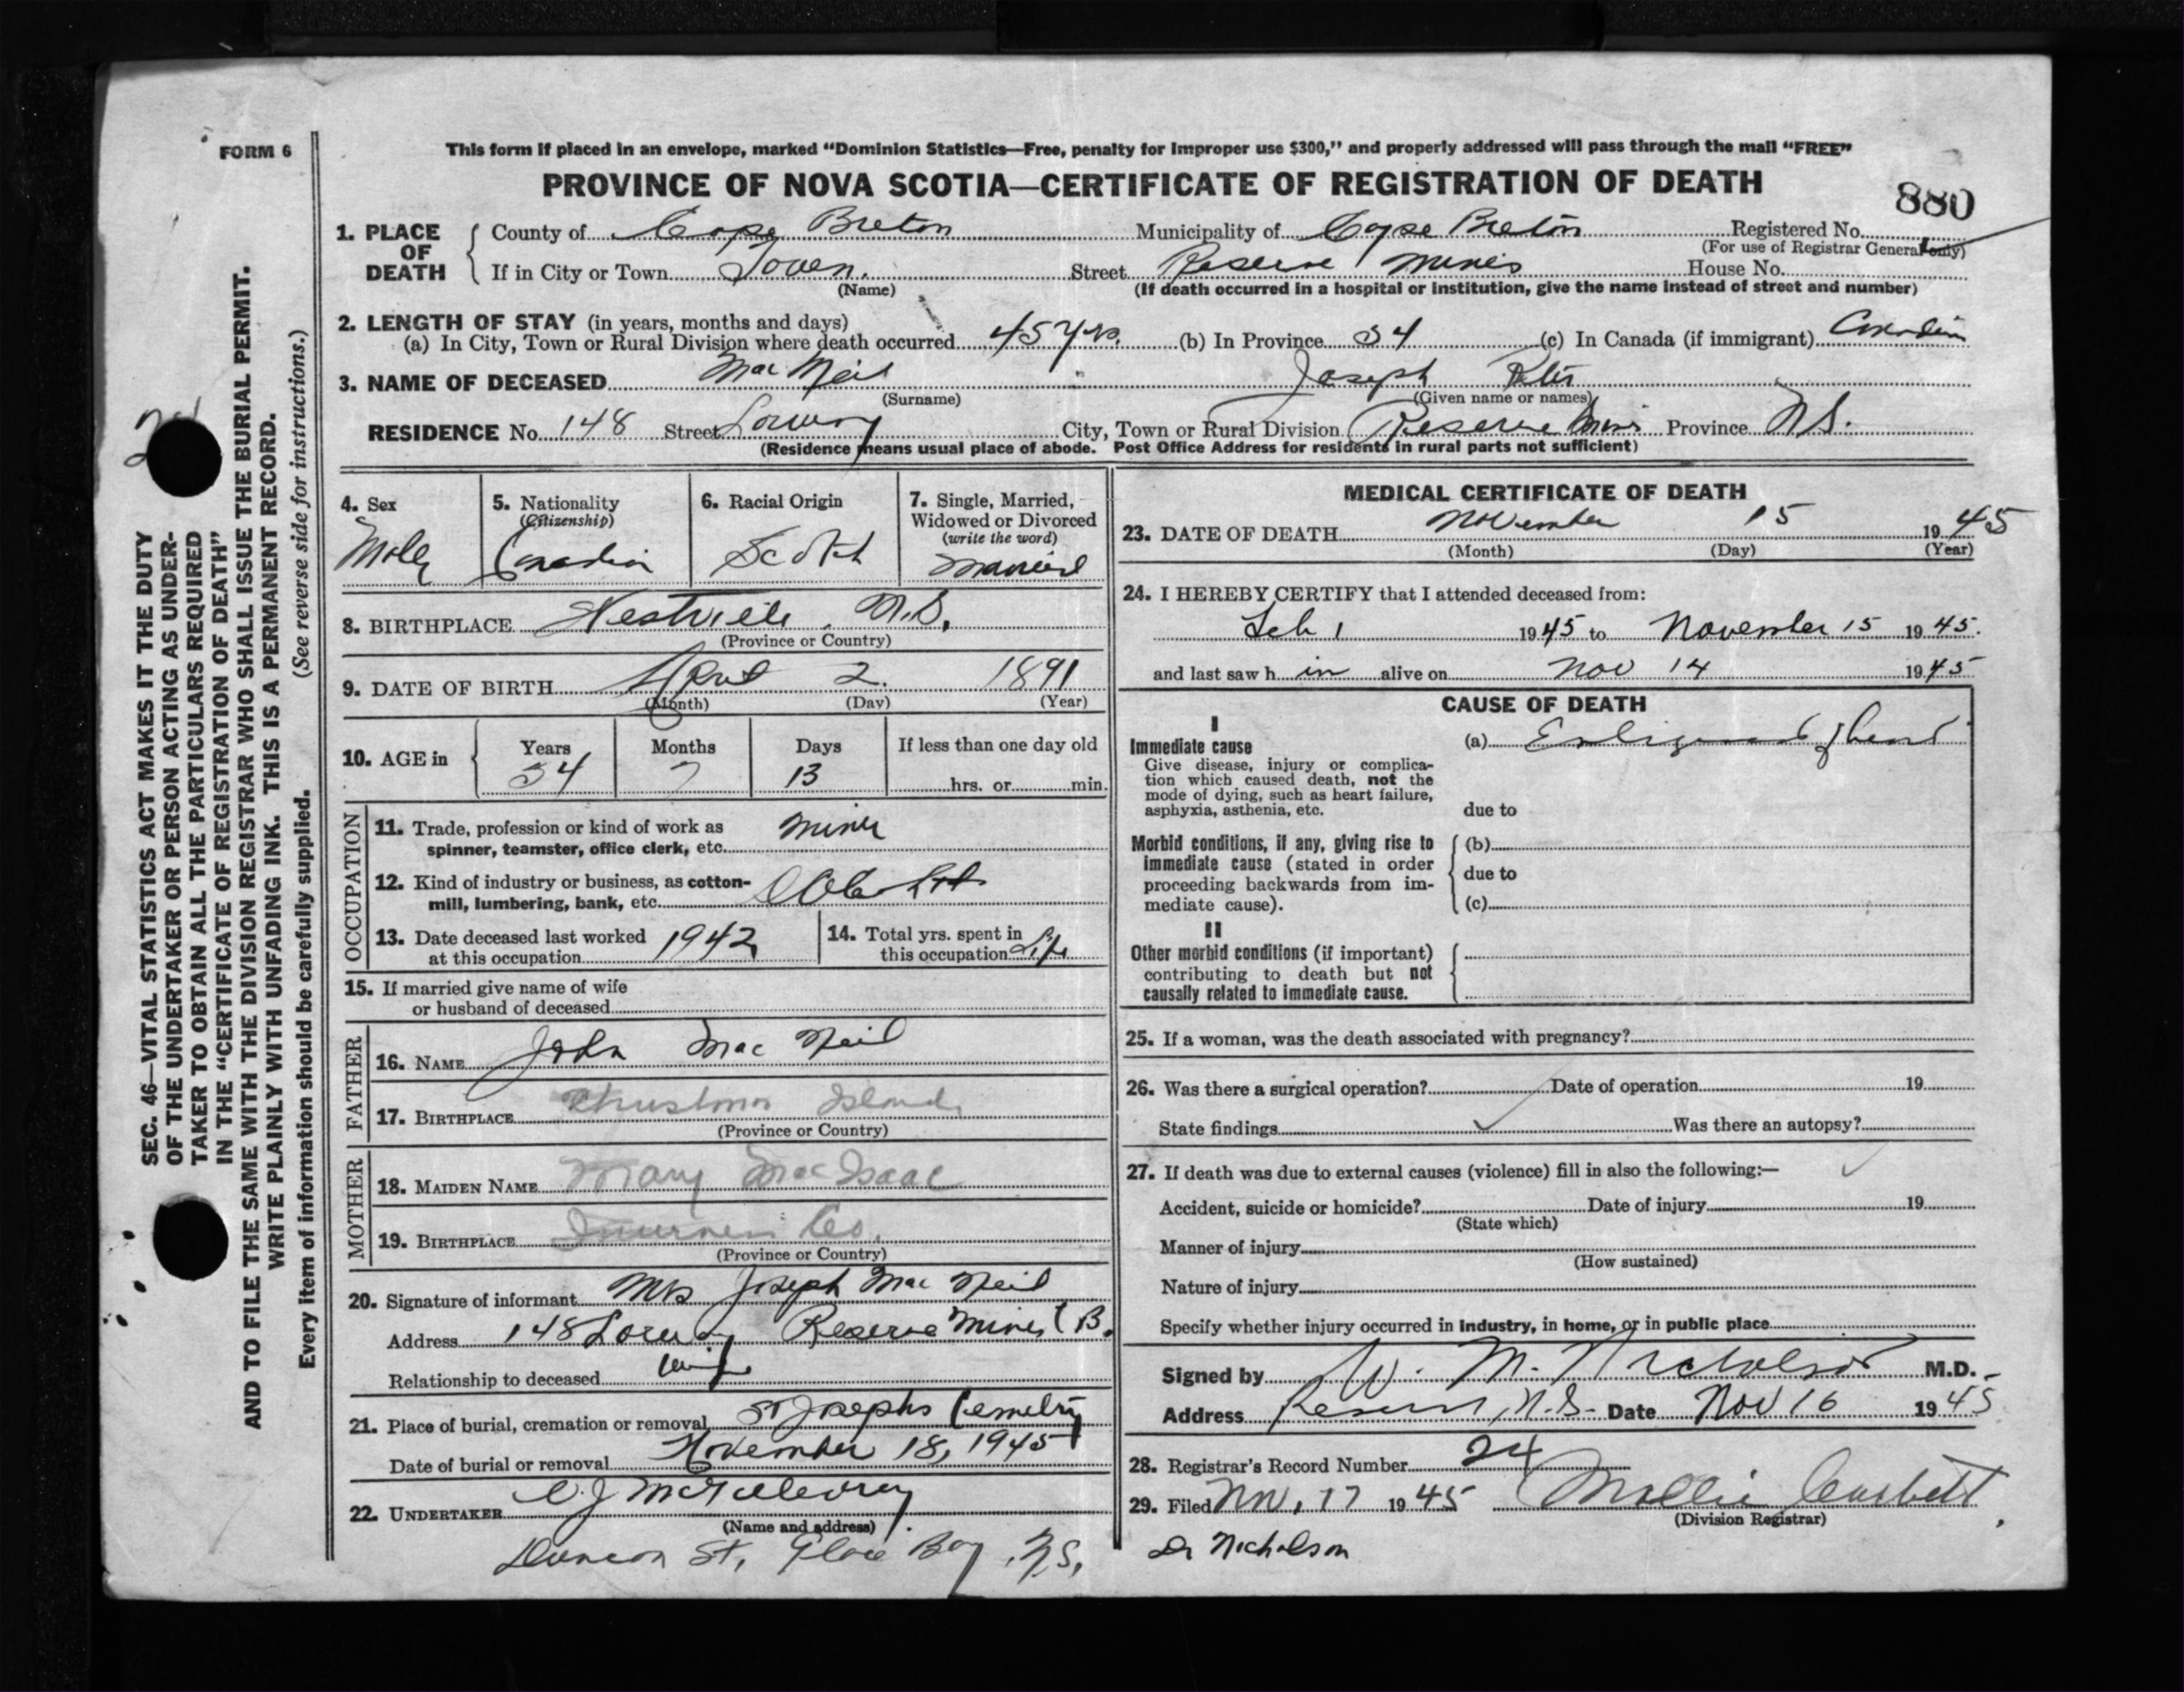 FORM 6
This form if placed in an envelope, marked “Dominion Statistics—Free, penalty for improper use $300,” and properly addressed will pass through the mail “FREE”
PROVINCE OF NOVA SCOTIA—CERTIFICATE OF REGISTRATION OF DEATH
880
1. PLACE OF DEATH
County of Cape Breton Municipality of Cape Breton Registered No.
(For use of Registrar General only)
If in City or Town Town. Street Reserve Mines House No.
(Name) (If death occurred in a hospital or institution, give the name instead of street and number)
2. LENGTH OF STAY (in years, months and days)
(a) In City, Town or Rural Division where death occurred 45 yrs. (b) In Province 54 (c) In Canada (if immigrant) Canadian
3. NAME OF DECEASED Mac Neil Joseph Peter
(Surname) (Given name or names)
RESIDENCE No. 148 Street Lorway City, Town or Rural Division Reserve Mines Province N.S.
(Residence means usual place of abode. Post Office Address for residents in rural parts not sufficient)
4. Sex
Male
5. Nationality
(Citizenship)
Canadian
6. Racial Origin
Scotch
7. Single, Married,
Widowed or Divorced
(write the word)
Married
8. BIRTHPLACE Westville, N.S.
(Province or Country)
9. DATE OF BIRTH April 2. 1891
(Month) (Day) (Year)
10. AGE in
Years Months Days If less than one day old
54 7 13 hrs. or min.
OCCUPATION
11. Trade, profession or kind of work as
spinner, teamster, office clerk, etc. Miner
12. Kind of industry or business, as cotton-
mill, lumbering, bank, etc.
13. Date deceased last worked
at this occupation 1942
14. Total yrs. spent in
this occupation Life
15. If married give name of wife
or husband of deceased
FATHER
16. NAME John Mac Neil
17. BIRTHPLACE Christmas Island
(Province or Country)
MOTHER
18. MAIDEN NAME Mary MacIsaac
19. BIRTHPLACE Inverness Co.
(Province or Country)
20. Signature of informant Mrs Joseph Mac Neil
Address 148 Lorway Reserve Mines C B.
Relationship to deceased wife
21. Place of burial, cremation or removal St Josephs Cemetry
Date of burial or removal November 18, 1945
22. UNDERTAKER C.J McGillivray
(Name and address)
St, Glace Bay, N.S.
MEDICAL CERTIFICATE OF DEATH
23. DATE OF DEATH November 15 1945
(Month) (Day) (Year)
24. I HEREBY CERTIFY that I attended deceased from:
Feb 1 1945 to November 15 1945.
and last saw h im alive on Nov 14 1945
CAUSE OF DEATH
I
Immediate cause
Give disease, injury or complica-
tion which caused death, not the
mode of dying, such as heart failure,
asphyxia, asthenia, etc.
(a) Enlargement of heart
due to
Morbid conditions, if any, giving rise to
immediate cause (stated in order
proceeding backwards from im-
mediate cause).
(b)
due to
(c)
II
Other morbid conditions (if important)
contributing to death but not
causally related to immediate cause.
25. If a woman, was the death associated with pregnancy?
26. Was there a surgical operation? Date of operation 19
State findings Was there an autopsy?
27. If death was due to external causes (violence) fill in also the following:—
Accident, suicide or homicide? Date of injury 19
(State which)
Manner of injury
(How sustained)
Nature of injury
Specify whether injury occurred in industry, in home, or in public place
Signed by W. M. Nicholson M.D.
Address Reserve, N.S. Date Nov 16 1945
28. Registrar's Record Number 24
29. Filed Nov, 17 1945 Mollie Corbett
(Division Registrar)
Dr Nicholson
SEC. 46—VITAL STATISTICS ACT MAKES IT THE DUTY
OF THE UNDERTAKER OR PERSON ACTING AS UNDER-
TAKER TO OBTAIN ALL THE PARTICULARS REQUIRED
IN THE “CERTIFICATE OF REGISTRATION OF DEATH”
AND TO FILE THE SAME WITH THE DIVISION REGISTRAR WHO SHALL ISSUE THE BURIAL PERMIT.
WRITE PLAINLY WITH UNFADING INK. THIS IS A PERMANENT RECORD.
Every item of information should be carefully supplied. (See reverse side for instructions.)